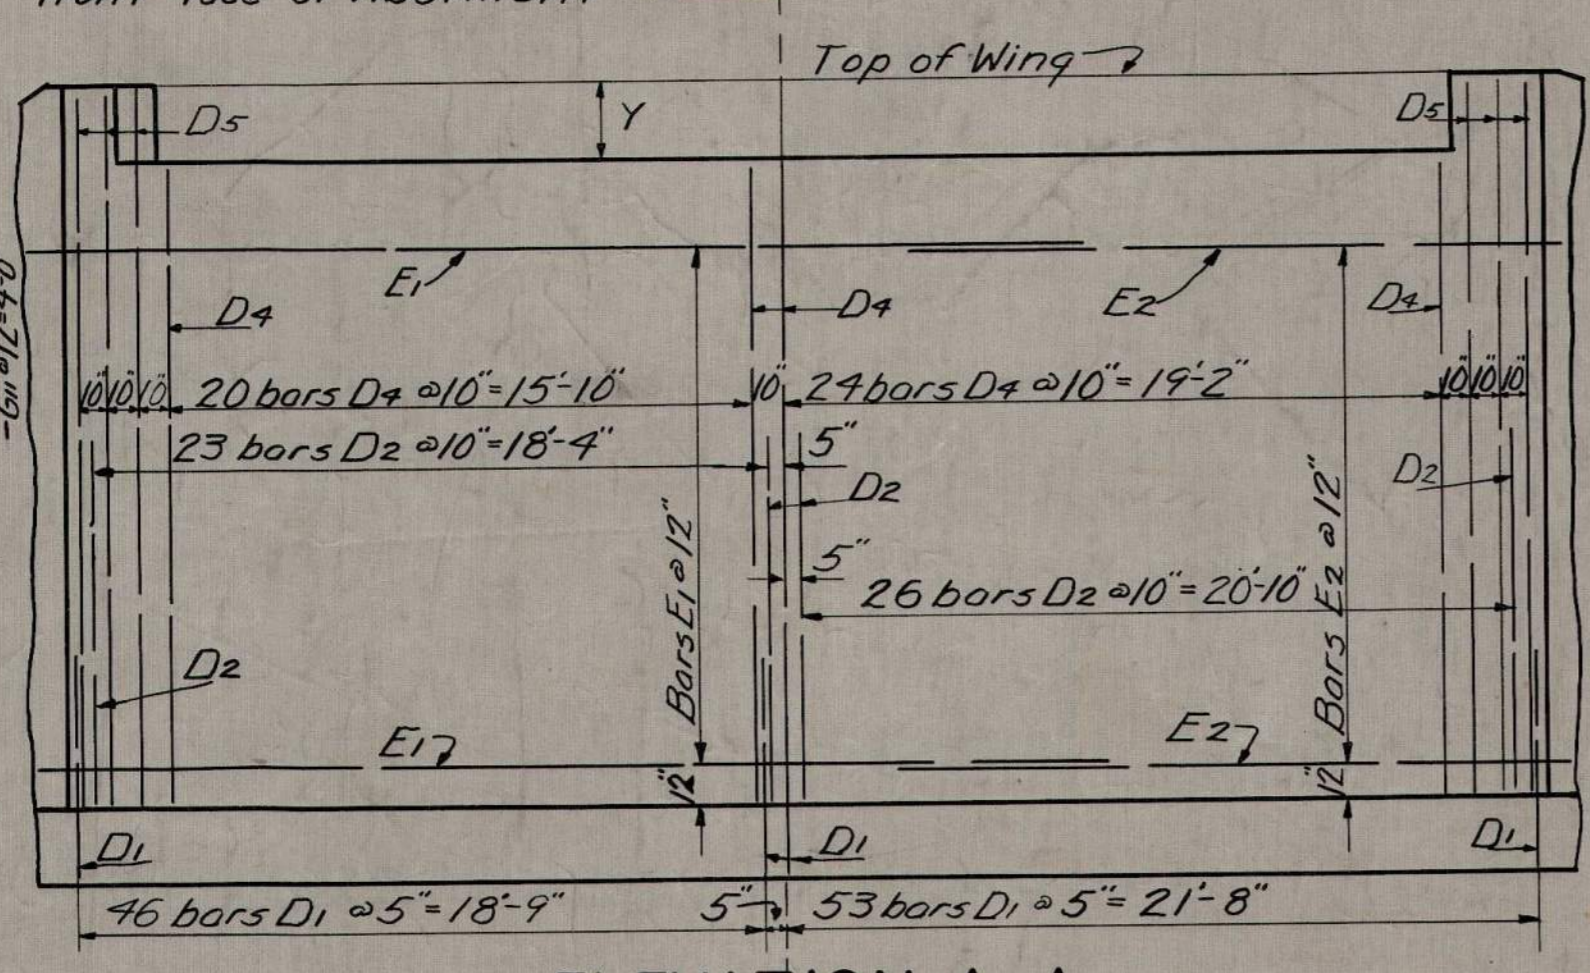 Top of Wing
D5
Y
D5
E1
E2
D4
D4
D4
10" 10" 10"
20 bars D4 @10"=15'-10"
10"
24 bars D4 @10"=19'-2"
10" 10" 10"
23 bars D2 @10"=18'-4"
5"
D2
D2
5"
26 bars D2 @10"=20'-10"
Bars E1 @12"
Bars E2 @12"
D2
E1
E2
12"
12"
D1
D1
D1
46 bars D1 @5"=18'-9"
5"
53 bars D1 @5"=21'-8"